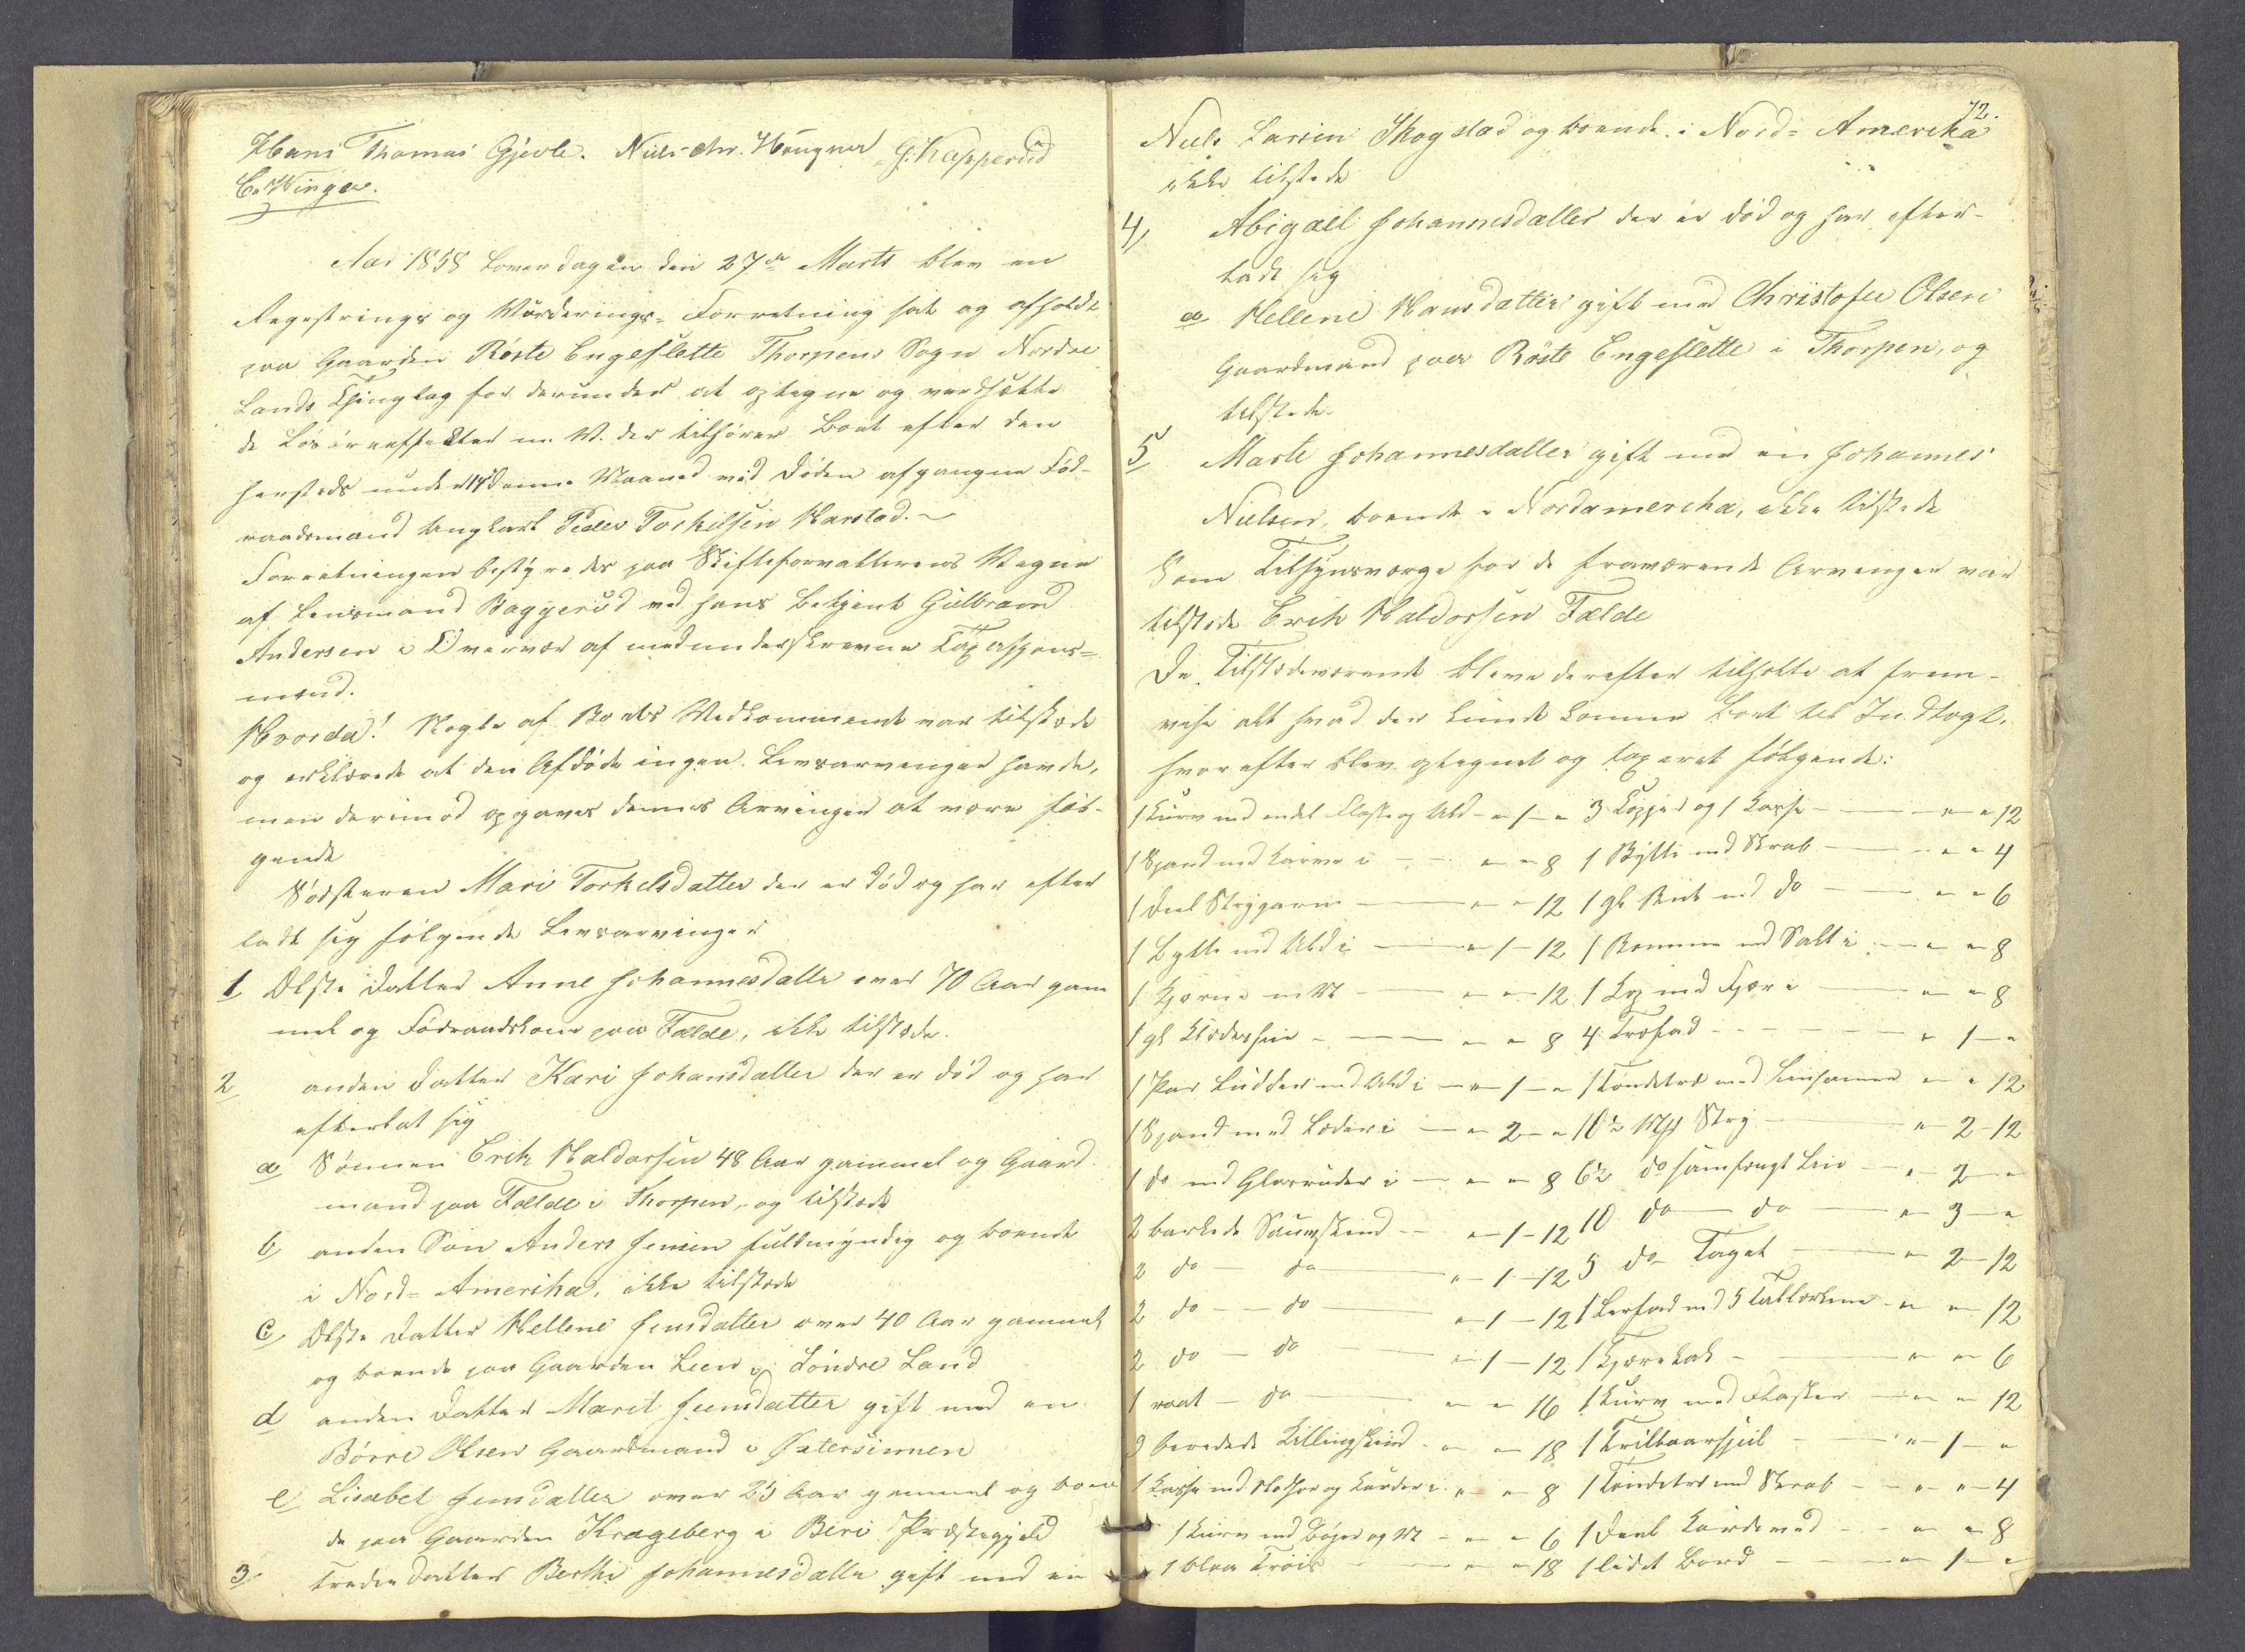 Hans Thomas Gjevle. Niels Chr. Haugner G. Kapperud
C. Winger.
Aar 1858 Løverdagen den 27de Marts blev en
Registrings og Vurderings-Forretning sat og afholdt
paa Gaarden Røste Engeslette Thorpens Sogn Nordre
Lands Thinglag for derunder at optegne og værdsætte
de Løsøreeffecter m. V. der tilhører Boet efter den
hersteds under 14 denne Maaned ved Døden afgangne Fød-
raadsmand Ungkarl Peder Torkilsen Harstad.
Forretningen bestyredes paa Skifteforvalterens Vegne
af Lensmand Baggerud ved hans Betjent Gulbrand
Andersen i Overvær af medunderskrevne Taxations-
mænd.
Hvorda! Nogle af Boets Vedkommende var tilstede
og erklærede at den Afdøde ingen Livsarvinger havde,
men derimod opgaves dennes Arvinger at være føl-
gende
Søsteren Mari Torkelsdatter der er død og har efter
ladt sig følgende Livsarvinger
1 Ælste Datter Anne Johannesdatter over 70 Aar gam
mel og Føderaadskone paa Fælde, ikke tilstede.
2 anden Datter Kari Johansdatter der er død og har
efterlat sig
a Sønnen Erik Haldorsen 48 Aar gammel og Gaard-
mand paa Fælde i Thorpen, og tilstede
b anden Søn Anders Jensen fuldmyndig og boende
i Nord-Amerika, ikke tilstede
c Ælste Datter Hellene Jensdatter over 40 Aar gammel
og boende paa Gaarden Lien i Søndre Land
d anden Datter Marit Jensdatter gift med en
Børre Olsen Gaardmand i Østersinnen
e Lisabet Jensdatter over 25 Aar gammel og boen
de paa Gaarden Krageberg i Biri Præstegjeld
3 tredie Datter Berthe Johannesdatter gift med en
72.
Niels Larsen Skogstad og boende i Nord-Amerika
ikke tilstede
4 Abigael Johannesdatter der er død og har efter-
ladt sig
a Hellene Hansdatter gift med Christofer Olsen
Gaardmand paa Røste Engeslette i Thorpen, og
tilstede.
5 Marte Johannesdatter gift med en Johannes
Nielsen, boende i Nordamerika, ikke tilstede
Som Tilsynsværge for de fraværende Arvinger var
tilstede Erik Haldorsen Fælde
De Tilstedeværende bleve derefter tilholdte at frem-
vise alt hvad der kunde komme Boet til Indtægt,
hvorefter blev optegnet og taxeret følgende:
1 Kurv med endel Flasker og Uld - " 1 - " 3 Kopper og 1 Kasse - " " 12
1 Spand med Karve i - " " 8 1 Bytte med Skrab - " " 4
1 Deel Strygarn - " " 12 1 gl. do - " " 6
1 Bytte med Uld i - " 1 - 12 1 Bomme med Salt i - " " 8
1 Kjerne m V - " " 12 1 Kop med Fjær i - " " 8
1 gl - " " 8 4 Træfad - " 1 - "
1 Par Ludder med Uld i - " 1 - " 1 Tøndetræ med Linsamen " " 12
1 Spand med Læder i - " 2 - " 10½ Stry - " 2 - 12
1 do med Glasruder i - " " 8 6½ do Lin - " 2 - "
2 barkede Saueskind - " 1 - 12 10 do do - " 3 - "
2 do - do - " 1 - 12 5 do Taget - " 2 - 12
2 do - do - " 1 - 12 1 Lerfad med 5 Tallerkner - " " 12
2 do - do - " 1 - 12 1 Tjærekak - " " 6
1 raat - do - " " 16 1 Kurv med Flasker - " " 12
3 beredede Killingskind - " " 18 1 Trillbaarhjul - " 1 - "
1 Kasse med og Karder i " " 8 1 Tøndetræ med Skrab - " " 4
1 Kurv med Bøger og V - " " 6 1 Deel - " " 8
1 blaa Trøie - " " 18 1 lidet Bord - " 1 - "